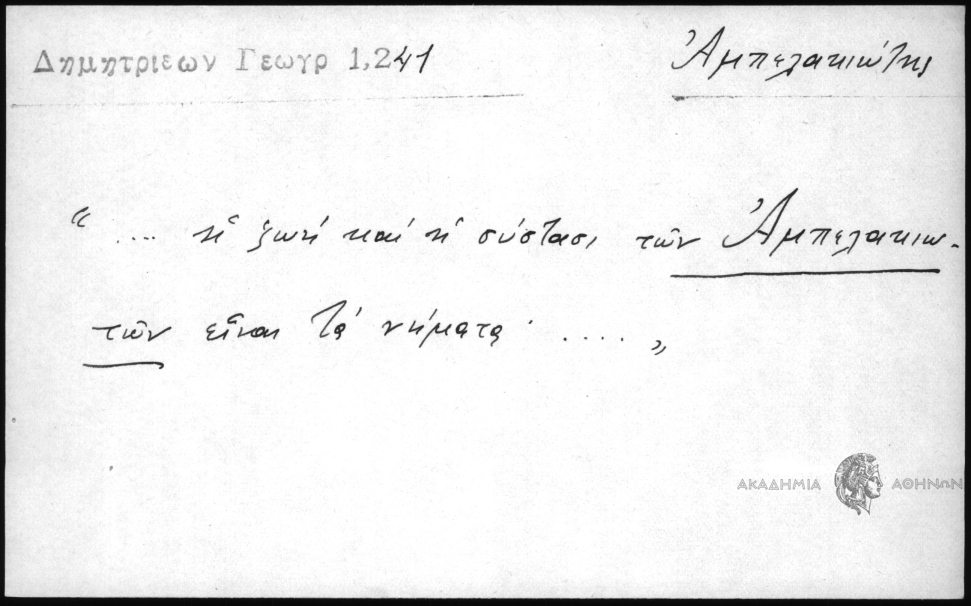 Δημητριεων Γεωγρ 1,241 Ἀμπελακιώτης
“ .... ἡ ζωή καί ἡ σύστασι τῶν Ἀμπελακιω-
τῶν εἶναι τά νήματα· .... „
ΑΚΑΔΗΜΙΑ ΑΘΗΝΩΝ